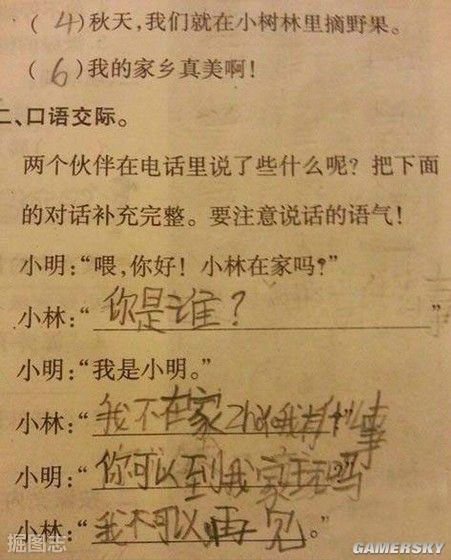 ( 4 )秋天,我们就在小树林里摘野果。
( 6 )我的家乡真美啊!
二、口语交际。
两个伙伴在电话里说了些什么呢? 把下面
的对话补充完整。要注意说话的语气!
小明:“喂,你好! 小林在家吗?”
小林:“你是谁?”
小明:“我是小明。”
小林:“我不在家zhao我有什么事”
小明:“你可以到我家玩吗”
小林:“我不可以再见。”
掘图志
GAMERSKY